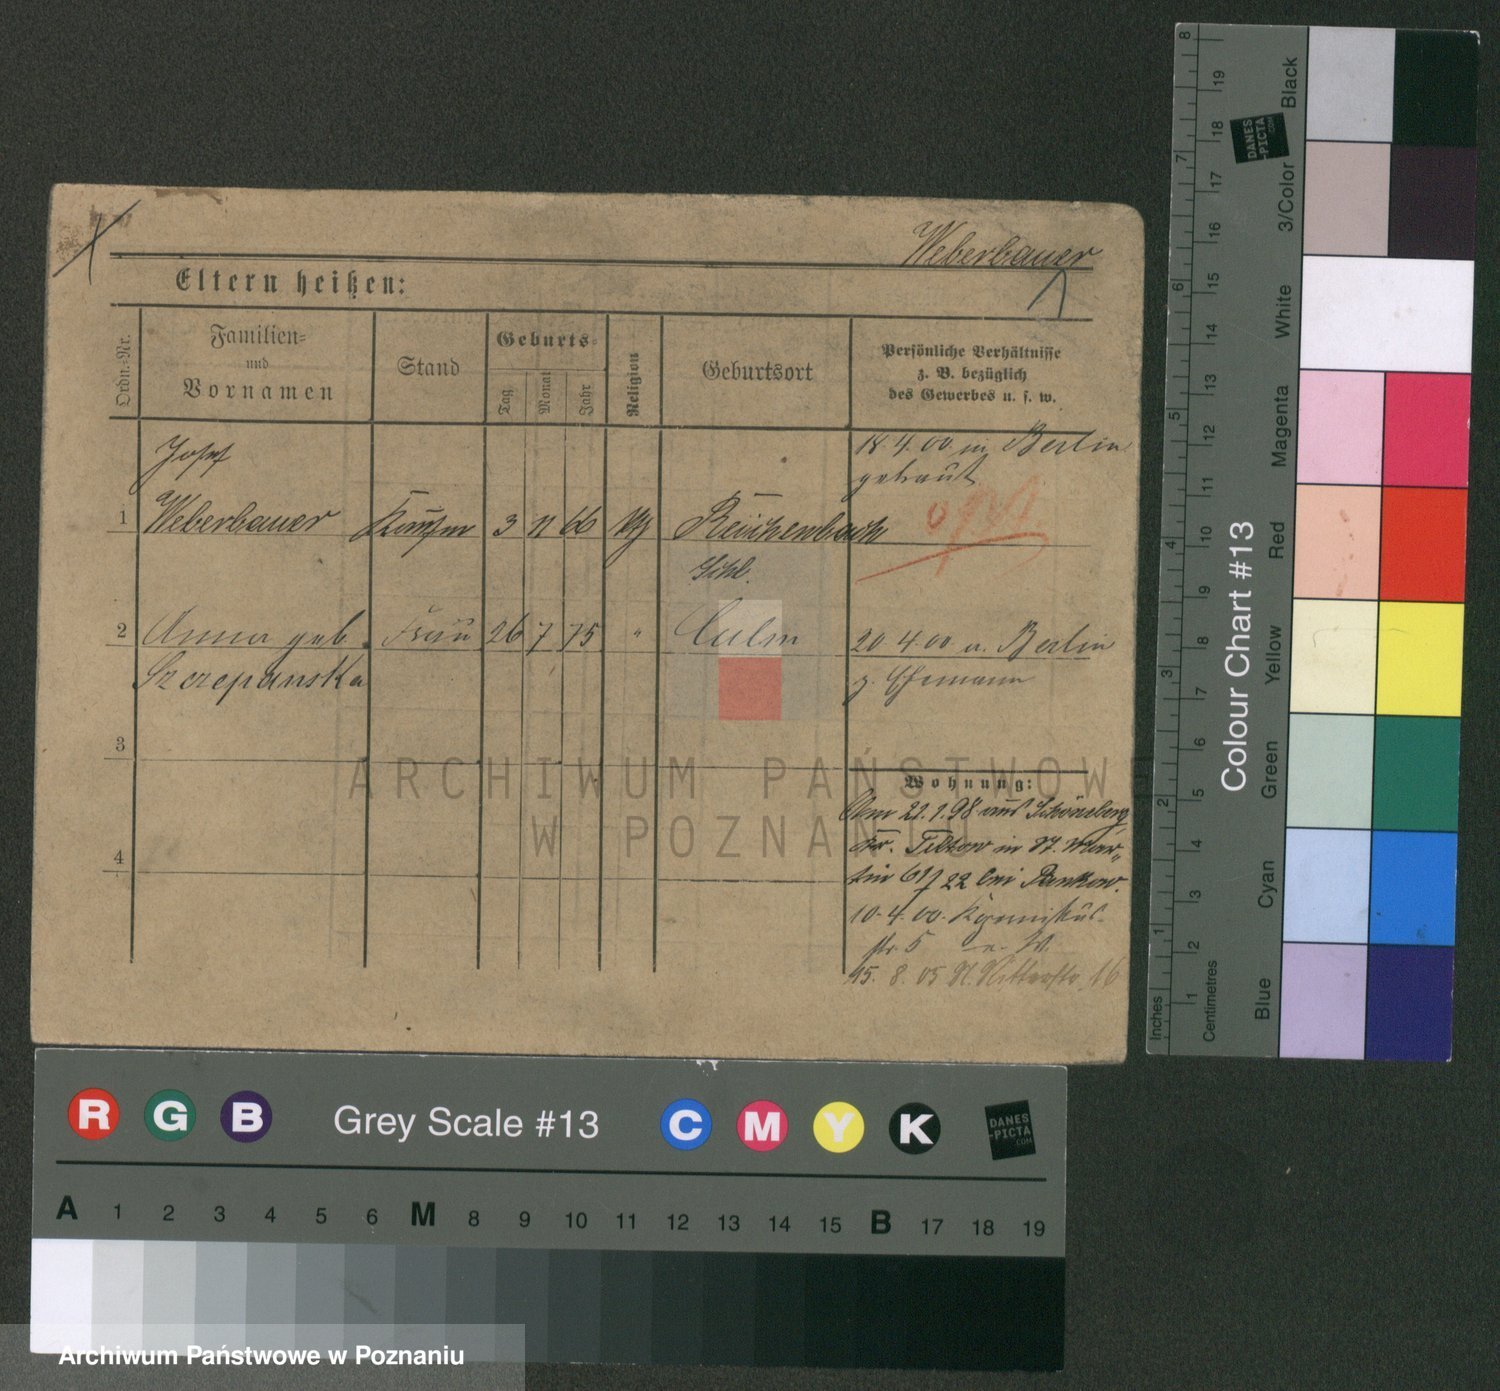 Weberbauer
Eltern heißen:
Ordn.-Nr.
Familien-
und
Vornamen
Stand
Geburts-
Tag
Monat
Jahr
Religion
Geburtsort
Persönliche Verhältnisse
z. B. bezüglich
des Gewerbes u. s. w.
1
Josef
Weberbauer
Kaufm
3 11 66
Reichenbach
Schl.
18.4.00 in Berlin
getraut
2
Anna geb.
Szczepanska
Frau
26 7 75
"
Culm
20 4 00 a. Berlin
z. Ehemann
3
4
Wohnung:
Am 22.1.98 aus Schöneberg
Kr. Teltow in St. Mar-
tin 61/22 bei Pankow.
10.4.00.
str. 5 a. W.
15. 8. 05 Ritterstr. 16
ARCHIWUM PAŃSTWOWE
W POZNANIU
Inches
1 2 3 4 5 6 7 8
Centimetres
1 2 3 4 5 6 7 8 9 10 11 12 13 14 15 16 17 18 19
Colour Chart #13
Blue Cyan Green Yellow Red Magenta White 3/Color Black
DANES
-PICTA
.COM
R G B Grey Scale #13 C M Y K
DANES
-PICTA
.COM
A 1 2 3 4 5 6 M 8 9 10 11 12 13 14 15 B 17 18 19
Archiwum Państwowe w Poznaniu